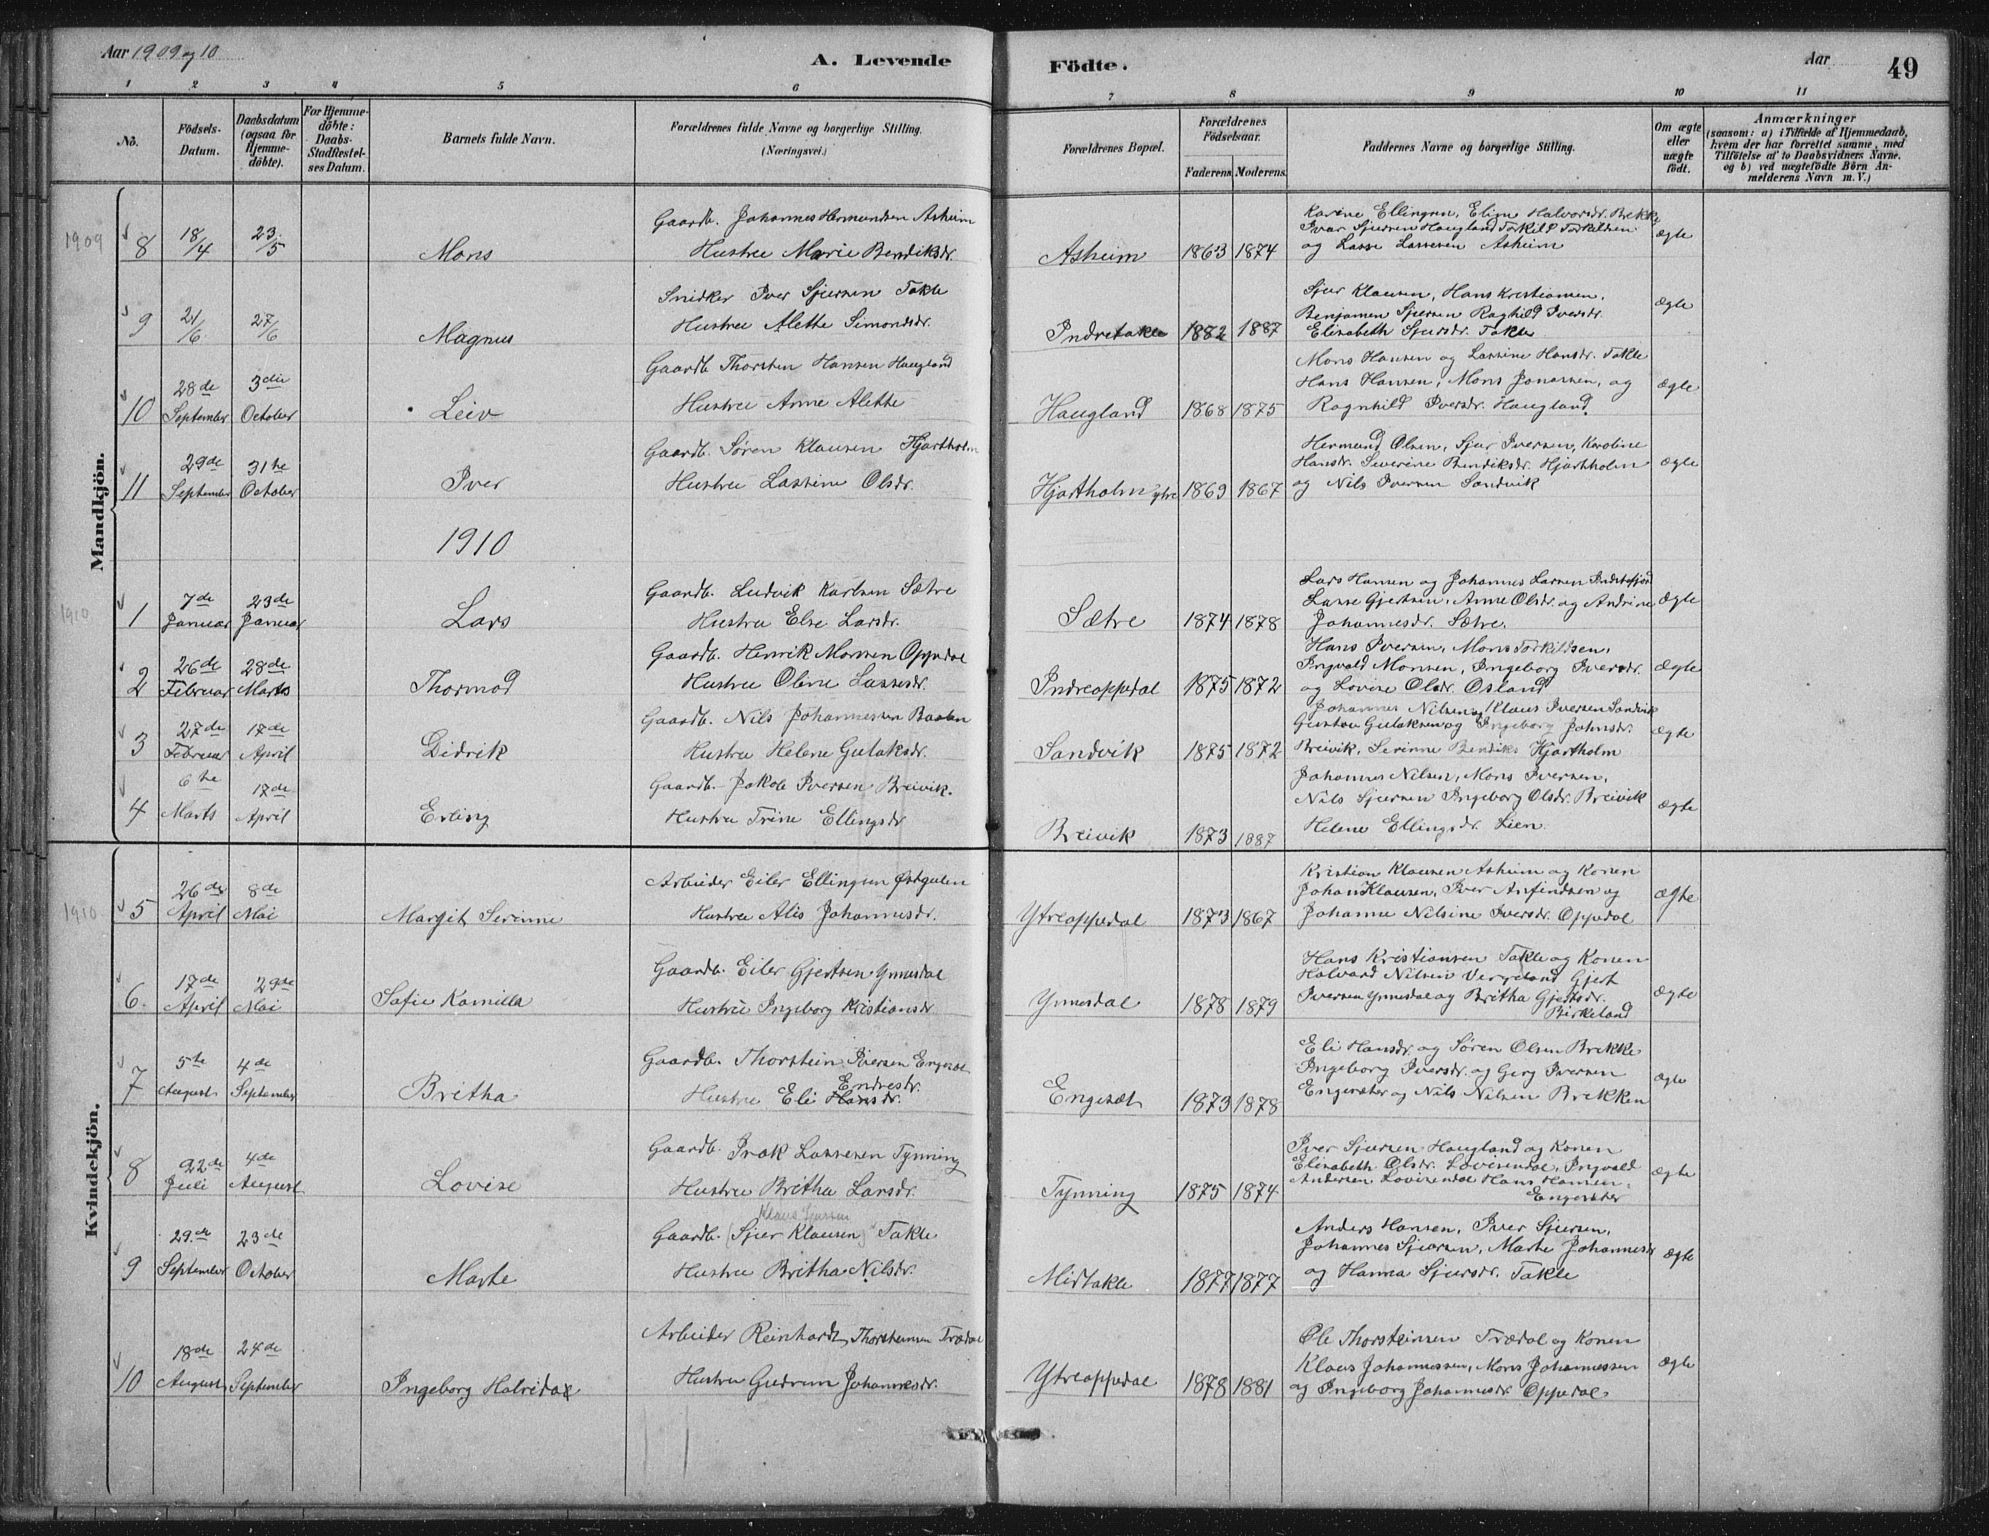 Aar 1909 og 10
A. Levende Födte.
Aar
49
1 2 3 4 5 6 7 8 9 10 11
No.
Födsels-Datum.
Daabsdatum (ogsaa för Hjemme-döbte).
For Hjemme-döbte: Daabs-Stadfæstel-ses Datum.
Barnets fulde Navn.
Forældrenes fulde Navne og borgerlige Stilling. (Næringsvei.)
Forældrenes Bopæl.
Forældrenes Födselsaar.
Faderens Moderens
Faddernes Navne og borgerlige Stilling.
Om ægte eller uægte födt.
Anmærkninger
(saasom: a) i Tilfælde af Hjemmedaab,
hvem der har forrettet samme, med
Tilföielse af to Daabsvidners Navne,
og b) ved uægtefödte Börn An-
melderens Navn m. V.)
Mandkjön.
1909
8 18/4 23/5 Mons
Gaardb. Johannes Hermundsen Asheim
Hustru Marie Bendiksdr.
Asheim 1863 1874
Karine Ellingsen, Eline Halvorsdr. Brekke
Ivar Sjursen Haugland Torkild Torkildsen
og Lasse Lassesen Asheim
ægte
9 21/6 27/6 Magnus
Snidker Iver Sjursen Takle
Hustru Alette Simonsdr.
Indretakle 1882 1887
Sjur Klausen, Hans Kristiansen,
Benjamen Sjursen Raghild Iversdr.
Elisabeth Sjursdr. Takle
ægte
10 28de September 3die October Leiv
Gaardb Thorsten Hansen Haugland
Hustru Anne Alette
Haugland 1868 1875
Mons Hansen og Lassine Hansdr. Takle
Hans Hansen, Mons Jonassen, og
Ragnhild Iversdr. Haugland
ægte
11 29de September 31te October Iver
Gaardb. Søren Klausen Hjartholm
Hustru Lassine Olsdr.
Hjartholm ytre 1869 1867
Hermund Olsen, Sjur Iversen, Karoline
Hansdr. Severine Bendiksdr. Hjartholm
og Nils Iversen Sandvik
ægte
1910
1910
1 7de Januar 23de Januar Lars
Gaardb. Ludvik Karlsen Sætre
Hustru Else Larsdr.
Sætre 1874 1878
Lars Hansen og Johannes Larsen Indrefjord
Lasse Gjertsen, Anne Olsdr. og Andrine
Johannesdr. Sætre.
ægte
2 26de Februar 28de Marts Thormod
Gaardb. Henrik Monsen Oppedal
Hustru Oline Lassesdr.
Indreoppedal 1875 1872
Hans Iversen, Mons Torkildsen,
Ingvald Monsen, Ingeborg Iversdr.
og Lovise Olsdr. Osland
ægte
3 27de Februar 17de April Didrik
Gaardb. Nils Johannessen
Hustru Helene Gulaksdr.
Sandvik 1875 1872
Johannes Nilsen og Klaus Iversen Sandvik
Gustav Gulaksen og Ingeborg Johnsdr.
Breivik, Serinne Bendiks Hjartholm
ægte
4 6te Marts 17de April Erling
Gaardb. Jakob Iversen Breivik.
Hustru Trine Ellingsdr
Breivik 1873 1887
Johannes Nilsen, Mons Iversen,
Nils Sjursen Ingeborg Olsdr. Breivik
Helene Ellingsdr. Lien.
ægte
Kvindekjön.
1910
5 26de April 8de Mai Margit Serinne
Arbeider Eiler Ellingsen Østgulen
Hustru Alis Johannesdr.
Ytreoppedal 1873 1867
Kristian Klausen Asheim og Konen
Johan Klausen, Iver Anfindsen og
Johanne Nilsine Iversdr. Oppedal
ægte
6. 17de April 29de Mai Sofie Kamilla
Gaardb. Eiler Gjertsen Ynnesdal
Hustru Ingeborg Kristiansdr
Ynnesdal 1878 1879
Hans Kristiansen Takle og Konen
Halvard Nilsen Vergeland Gjert
Iversen Ynnesdal og Britha Gjertsdr.
Birkeland
ægte
7 5te August 4de September Britha
Gaardb. Thorstein Iversen Engesæt
Endresdr.
Hustru Eli Hansdr.
Engesæt 1873 1878
Eli Hansdr. og Søren Olsen Brekke
Ingeborg Iversdr. og Gerg Iversen
Engesæter og Nils Nilsen Brekken
ægte
8 22de Juli 4de August Lovise
Gaardb. Isak Lassesen Tynning
Hustru Britha Larsdr.
Tynning 1875 1874
Iver Sjursen Haugland og Konen
Elisabeth Olsdr. Lovisendal, Ingvald
Andersen Lovisendal Hans Hansen
Engesæter
ægte
9 29.de September 23de October Marte
Klaus Sjursen
Gaardb. (Sjur Klausen) Takle
Hustru Britha Nilsdr.
Midtakle 1877 1877
Anders Hansen, Iver Sjursen,
Johannes Sjursen, Marte Johannesdr
og Hanna Sjursdr. Takle
ægte
10 18de August 24de September Ingeborg Halrida
Arbeider Reinhardt Thorsteinsen Trædal
Hustru Gudrun Johannesdr.
Ytreoppedal 1878 1881
Ole Thorsteinsen Trædal og Konen
Klaus Johannessen, Mons Johannessen
og Ingeborg Johannesdr Oppedal.
ægte